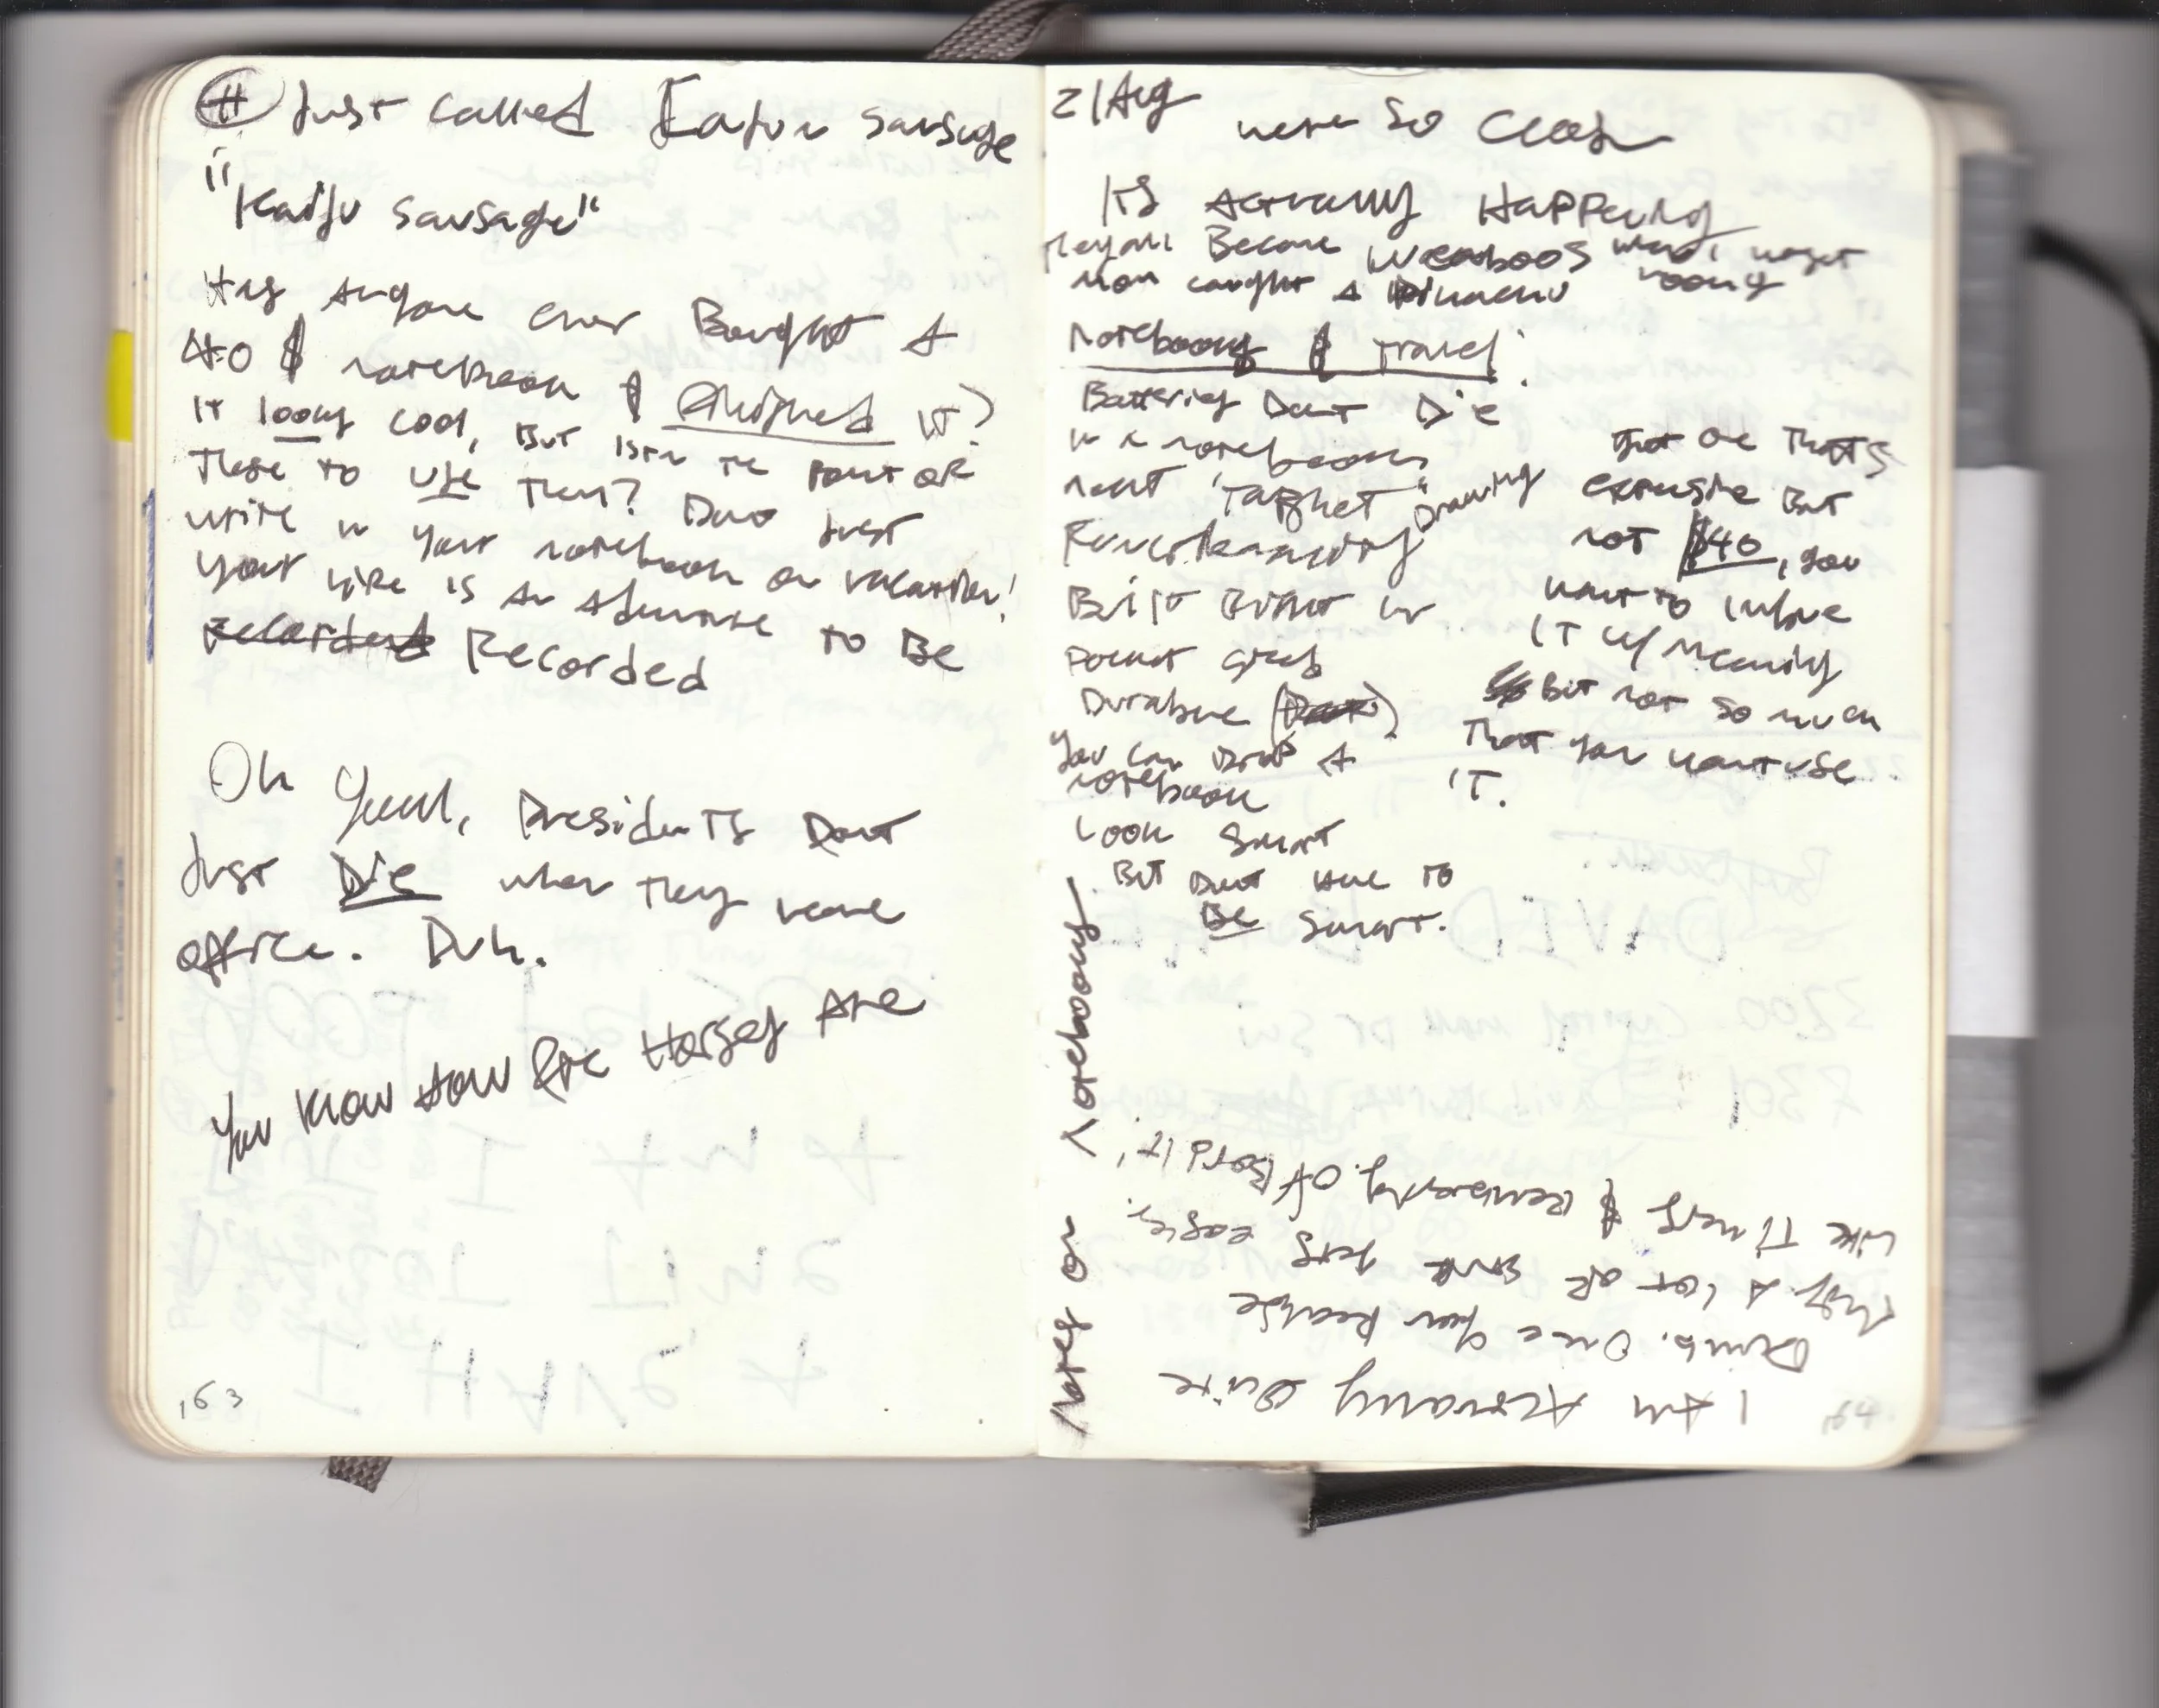 # Just called Cajun Sausage
"Kaiju Sausage"
Has anyone ever Bought A
40 $ notebook & finished it?
It looks cool, But isn't the point of
these to use them? Dont just
write in your notebook on vacation!
your life is an adventure to Be
recorded Recorded
Oh Yeah, Presidents Dont
Just Die when they leave
office. Duh.
You know How fire Horses are
163
21 Aug
were so close
Its Actually Happening
They all Became weeaboos when I wasnt looking
mom caught a Pikachu
Notebooks & Travel:
Batteries Dont Die
in a notebook
next "Tablet" Drawing
Functionality
Built Right in
Pocket sized
Durable
You can Drop A
notebook
Look smart
But Dont Have to
Be smart.
Get one thats
expensive But
not $40, you
want to imbue
it w/ meaning
But not so much
that you wont use
it.
Notes on Notebooks
I Am Actually Quite
Dumb. Once you Realize
that a lot of shit gets easier.
Like Times & Remembering. Of Board it.
164